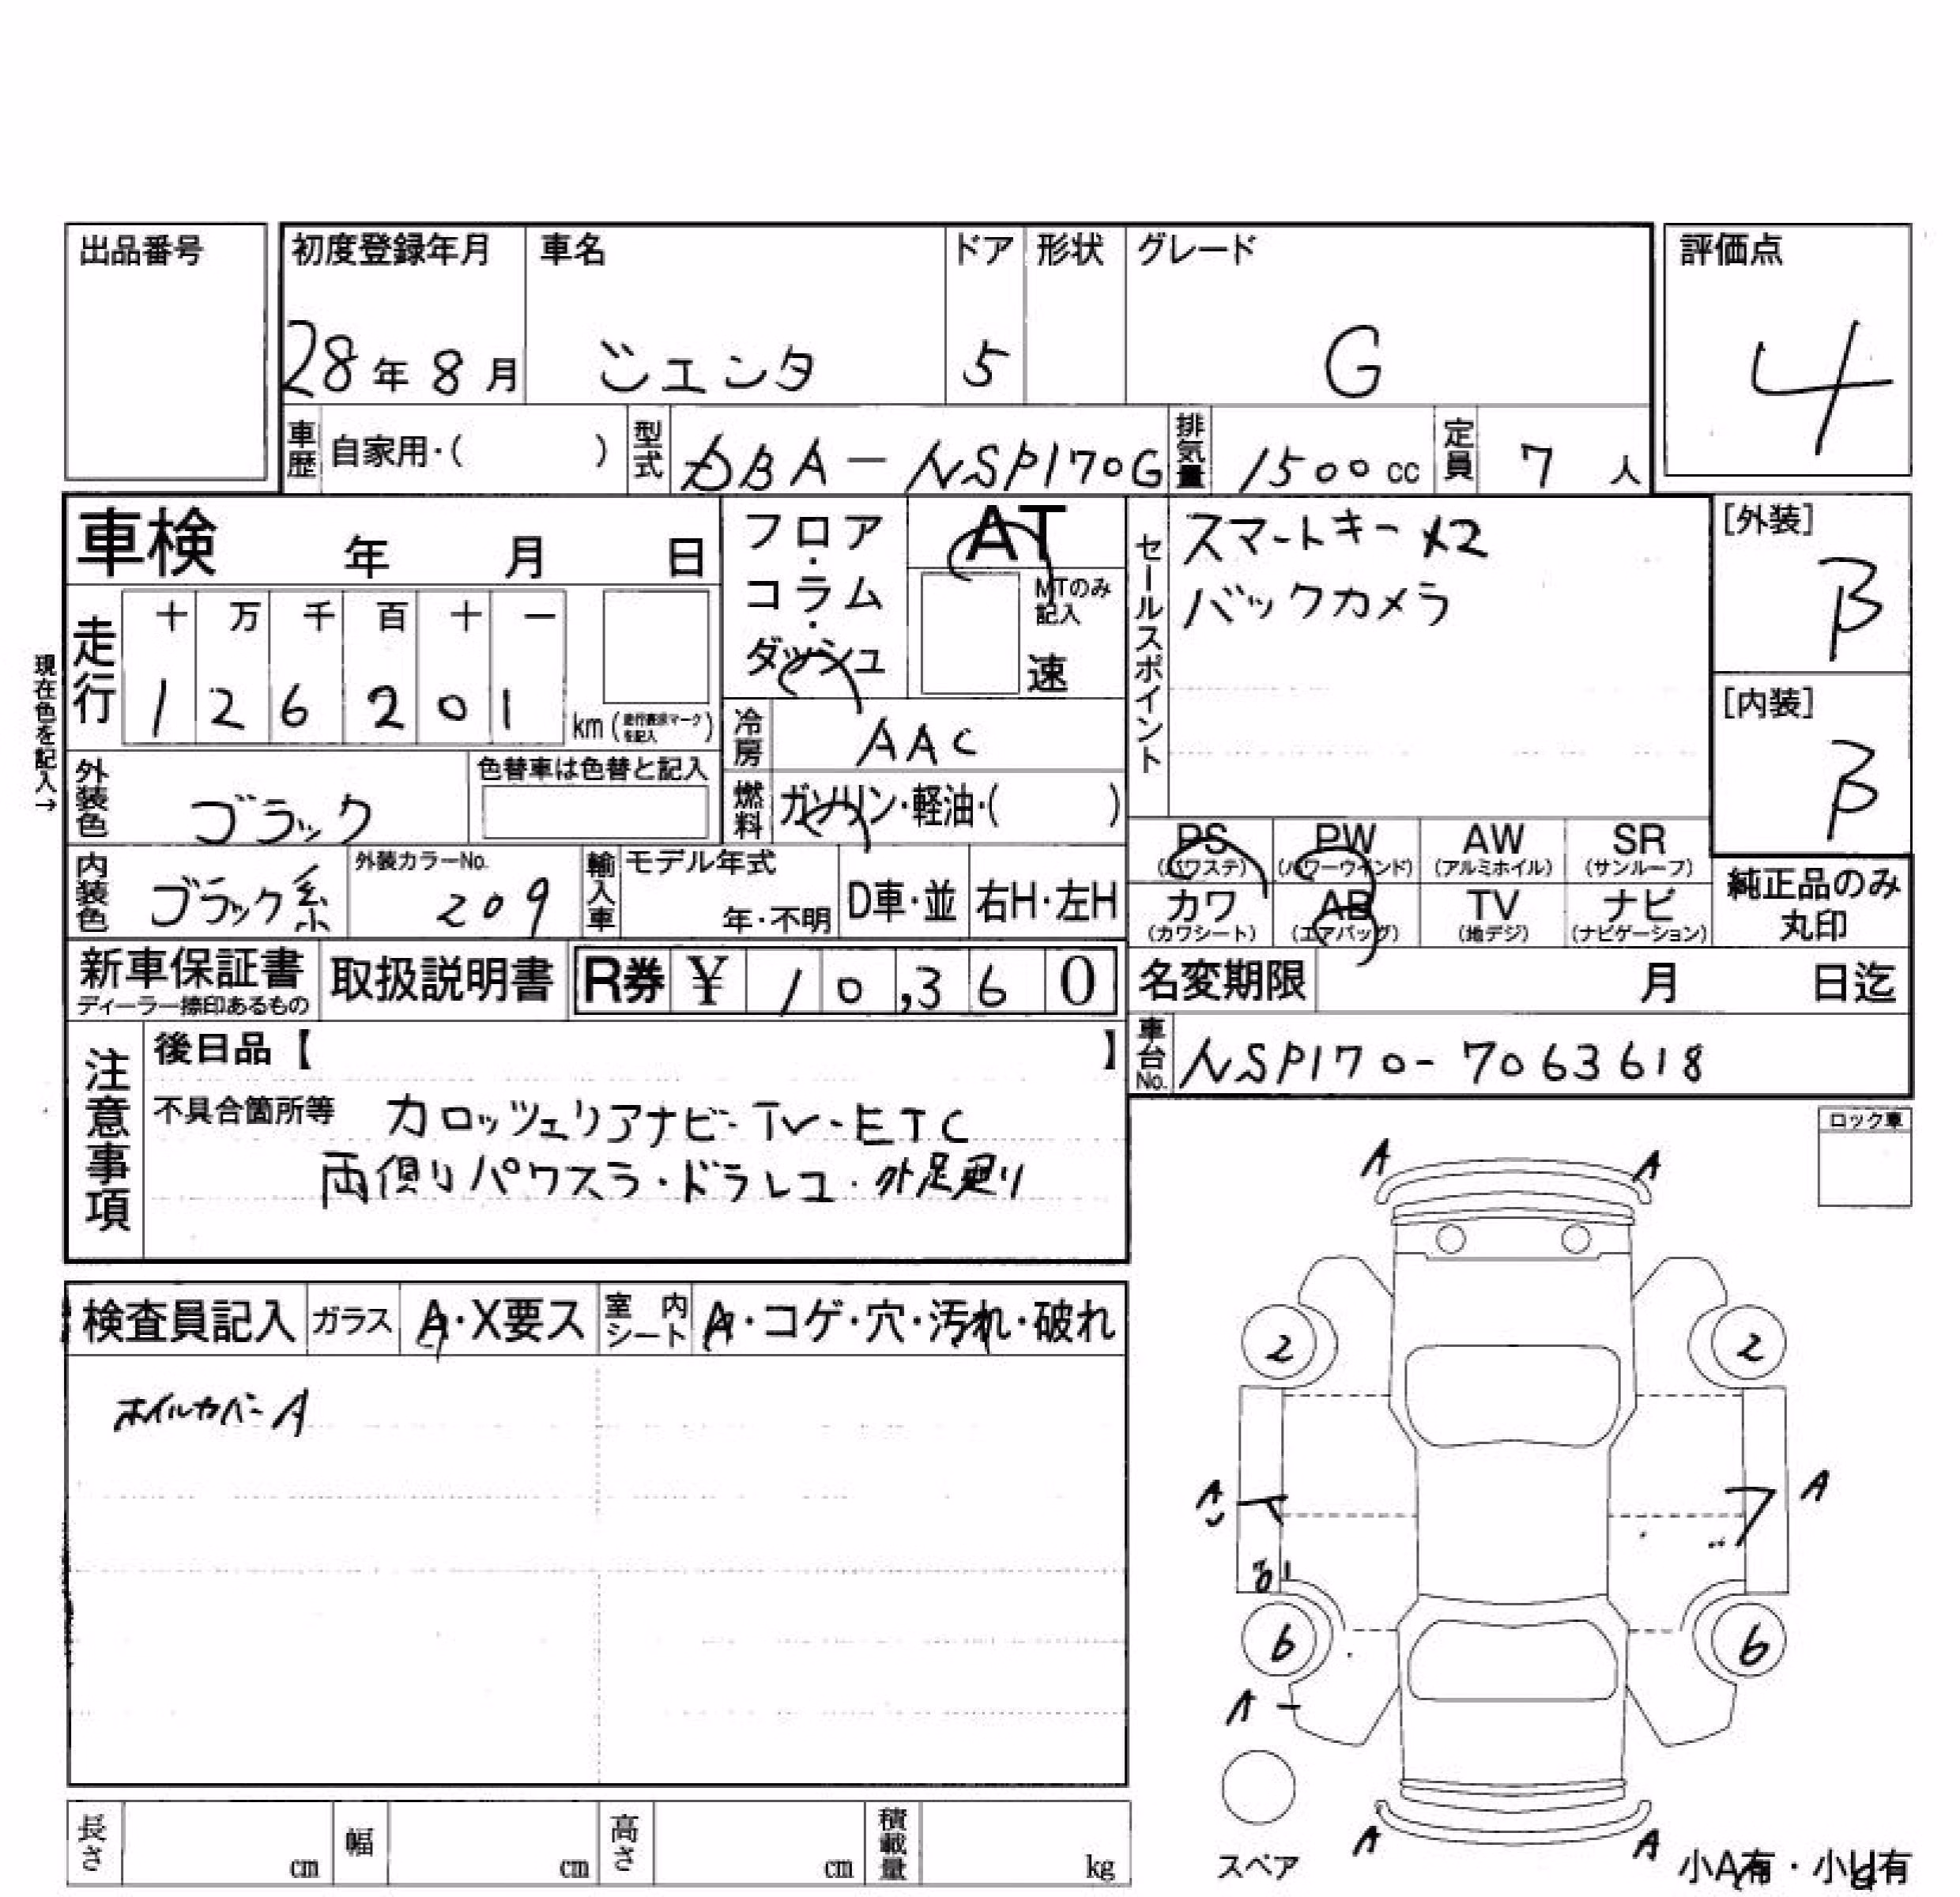 出品番号
初度登録年月 車名 ドア 形状 グレード 評価点
28年8月 シエンタ 5 G 4
車歴 自家用・( ) 型式 DBA-NSP170G 排気量 1500cc 定員 7人
車検 年 月 日
フロア・コラム・ダッシュ
AT
MTのみ記入
速
セールスポイント
スマートキー×2
バックカメラ
[外装]
B
[内装]
B
現在色を記入→
走行
十 万 千 百 十 一
1 2 6 2 0 1 km
冷房 AAC
外装色 ブラック 色替車は色替と記入
燃料 ガソリン・軽油・( )
内装色 ブラック系 外装カラーNo. 209
輸入車 モデル年式 年・不明 D車・並 右H・左H
PS (パワステ) PW (パワーウインド) AW (アルミホイル) SR (サンルーフ)
カワ (カワシート) AB (エアバッグ) TV (地デジ) ナビ (ナビゲーション)
純正品のみ
丸印
新車保証書 取扱説明書 R券 ¥ 10,360
ディーラー捺印あるもの
名変期限 月 日迄
車台No. NSP170-7063618
注意事項
後日品【 】
不具合箇所等 カロッツェリアナビ・TV・ETC
両側りパワスラ・ドラレコ・外足廻り
ロック車
検査員記入 ガラス A・X要ス 室内シート A・コゲ・穴・汚れ・破れ
ホイルカバーA
A A
2 2
A A
6 6
A
A A
スペア
小A有・小U有
長さ cm 幅 cm 高さ cm 積載量 kg